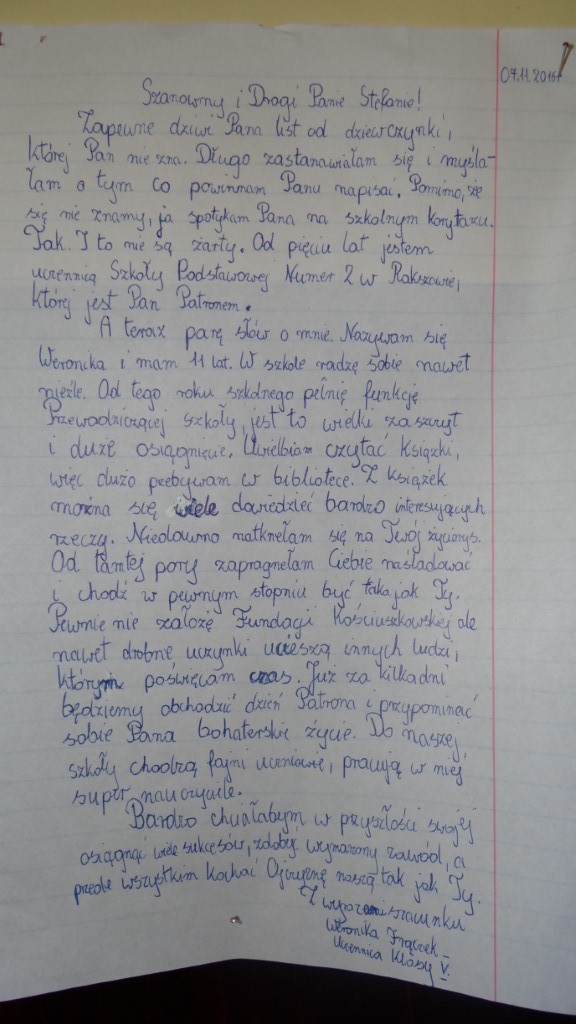 07.11.2016r
Szanowny i Drogi Panie Stefanie!
Zapewne dziwi Pana list od dziewczynki,
której Pan nie zna. Długo zastanawiałam się i myśla-
łam o tym co powinnam Panu napisać. Pomimo, że
się nie znamy, ja spotykam Pana na szkolnym korytarzu.
Tak. I to nie są żarty. Od pięciu lat jestem
uczennicą Szkoły Podstawowej Numer 2 w Rakszawie,
której jest Pan Patronem.
A teraz parę słów o mnie. Nazywam się
Weronika i mam 11 lat. W szkole radzę sobie nawet
nieźle. Od tego roku szkolnego pełnię funkcję
Przewodniczącej szkoły, jest to wielki zaszczyt
i duże osiągnięcie. Uwielbiam czytać książki,
więc dużo przebywam w bibliotece. Z książek
można się wiele dowiedzieć bardzo interesujących
rzeczy. Niedawno natknęłam się na Twój życiorys.
Od tamtej pory zapragnęłam Ciebie naśladować
i chodź w pewnym stopniu być taka jak Ty.
Pewnie nie założę Fundacji Kościuszkowskiej ale
nawet drobne uczynki ucieszą innych ludzi,
którym poświęcam czas. Już za kilka dni
będziemy obchodzić dzień Patrona i przypominać
sobie Pana bohaterskie życie. Do naszej
szkoły chodzą fajni uczniowie, pracują w niej
super nauczyciele.
Bardzo chciałabym w przyszłości swojej
osiągnąć wiele sukcesów, zdobyć wymarzony zawód, a
przede wszystkim kochać Ojczyznę naszą tak jak Ty.
Z wyrazami szacunku
Weronika Frączek –
Uczennica Klasy V.